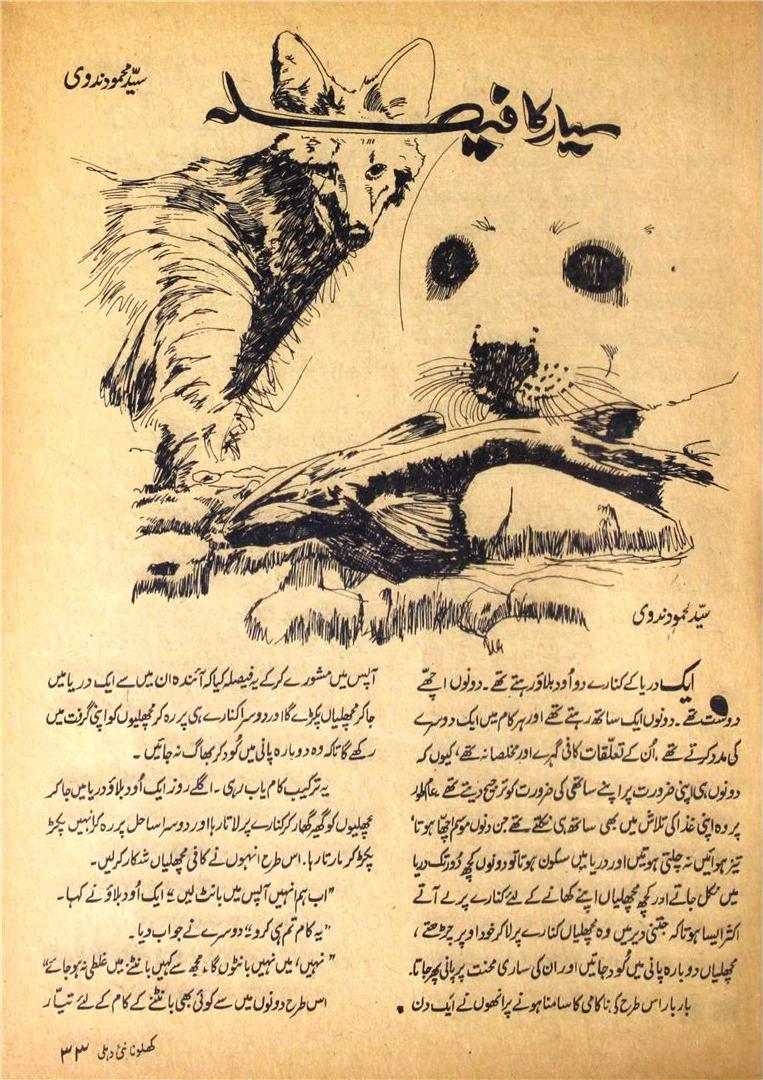 سیّد محمود ندوی
سیار کا فیصلہ
سیّد محمود ندوی
ایک دریا کے کنارے دو اُود بلاؤ رہتے تھے۔ دونوں اچھّے
دوست تھے۔ دونوں ایک ساتھ رہتے تھے اور ہر کام میں ایک دوسرے
کی مدد کرتے تھے۔ اُن کے تعلّقات کافی گہرے اور مخلصانہ تھے، کیوں کہ
دونوں ہی اپنی ضرورت پر اپنے ساتھی کی ضرورت کو ترجیح دیتے تھے۔ عام طور
پر وہ اپنی غذا کی تلاش میں بھی ساتھ ہی نکلتے تھے جن دنوں موسم اچھّا ہوتا،
تیز ہوائیں نہ چلتی ہوتیں اور دریا میں سکون ہوتا تو دونوں کچھ دُور تک دریا
میں نکل جاتے اور کچھ مچھلیاں اپنے کھانے کے لئے کنارے پر لے آتے
اکثر ایسا ہوتا کہ جتنی دیر میں وہ مچھلیاں کنارے پر لا کر خود اوپر چڑھتے،
مچھلیاں دوبارہ پانی میں کُود جاتیں اور ان کی ساری محنت پر پانی پھر جاتا۔
بار بار اس طرح کی ناکامی کا سامنا ہونے پر انھوں نے ایک دن
آپس میں مشورے کر کے یہ فیصلہ کیا کہ آئندہ ان میں سے ایک دریا میں
جا کر مچھلیاں پکڑے گا اور دوسرا کنارے ہی پر رہ کر مچھلیوں کو اپنی گرفت میں
رکھے گا تاکہ وہ دوبارہ پانی میں کُود کر بھاگ نہ جائیں۔
یہ ترکیب کام یاب رہی۔ اگلے روز ایک اُود بلاؤ دریا میں جا کر
مچھلیوں کو گھیر گھار کر کنارے پر لاتا رہا اور دوسرا ساحل پر رہ کر انہیں پکڑ
پکڑ کر مارتا رہا۔ اس طرح انہوں نے کافی مچھلیاں شکار کر لیں۔
"اب ہم انہیں آپس میں بانٹ لیں" ایک اُود بلاؤ نے کہا۔
"یہ کام تم ہی کرو" دوسرے نے جواب دیا۔
"نہیں، میں نہیں بانٹوں گا۔ مجھ سے کہیں بانٹنے میں غلطی نہ ہو جائے"
اس طرح دونوں میں سے کوئی بھی بانٹنے کے کام کے لئے تیّار
کھلونا نئی دہلی ۳۳